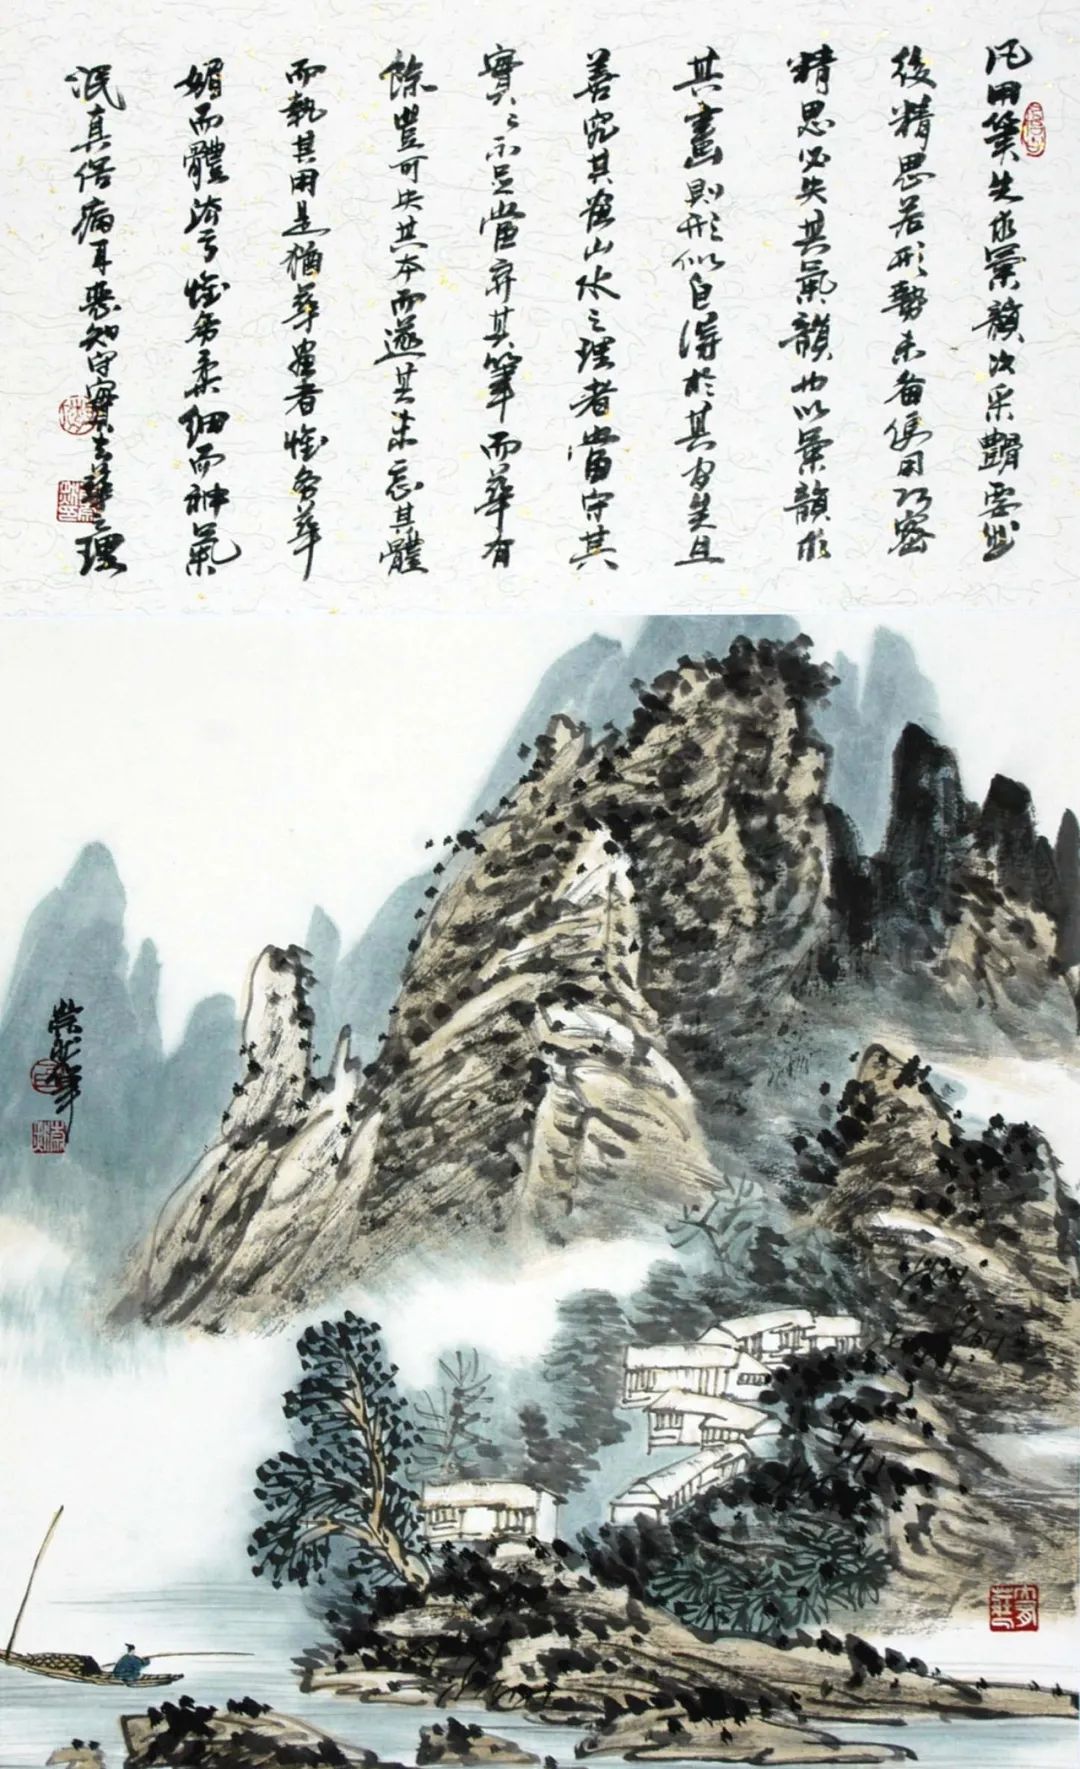 凡用筆先求氣韻次采體要然
後精思若形勢未备便用巧密
精思必失其氣韻也以氣韻求
其畫則形似自得於其間矣且
善究其畫山水之理者當守其
實々不足當弃其筆而華有
餘豈可失其本而逐其末忘其體
而執其用是猶華畫者惟务華
媚而體法亏惟务柔細而神氣
泯真俗病耳惡知守實去華之理